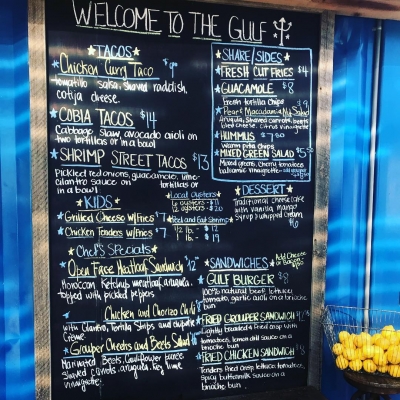 WELCOME TO THE GULF
TACOS
Chicken Curry Taco $9
tomatillo salsa, shaved raddish,
cotija cheese.
COBIA TACOS $14
Cabbage slaw, avocado aioli on
two tortillas or in a bowl
SHRIMP STREET TACOS $13
Pickled red onions, guacamole, lime
cilantro sauce on tortillas or
in a bowl
KIDS
Grilled Cheese w/fries $7
Chicken Tenders w/fries $7
Local Oysters
6 oysters $11
12 oysters $20
Peel and Eat Shrimp
1/2 lb. - $12
1 lb. - $19
Chef's Specials
Open Face Meatloaf Sandwich $12
Moroccan Ketchup, meatloaf, arugula,
topped with pickled peppers
Chicken and Chorizo Chili
with Cilantro, Tortilla Strips and chipotle
Crème
Grouper Cheeks and Beets Salad
Marinated Beets, Cauliflower puree
shaved fennels, arugula, key lime
vinaigrette
SHARE/SIDES
FRESH CUT FRIES $4
GUACAMOLE $8
fresh tortilla chips
Pear & Macadamia Nut Salad $9
Arugula, Shaved carrots, beets
bleu cheese, citrus vinaigrette
HUMMUS $7.50
warm pita chips
MIXED GREEN SALAD $5.50
Mixed greens, cherry tomatoes
balsamic vinaigrette
DESSERT
Traditional cheesecake
with vanilla, mango
syrup & whipped cream
$6
SANDWICHES
Add Cheese
or Bacon
GULF BURGER $8
100% natural beef, lettuce,
tomato, garlic aioli on a brioche
bun
FRIED GROUPER SANDWICH $12
Lightly breaded & fried crisp with
tomatoes, lemon dill sauce on a
brioche bun
FRIED CHICKEN SANDWICH $8
Tenders fried crisp, lettuce, tomatoes,
Spicy buttermilk sauce on a
brioche bun